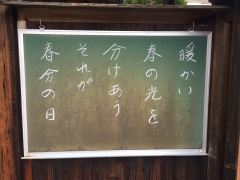 暖かい
春の光を
分けあう
それが
春分の日